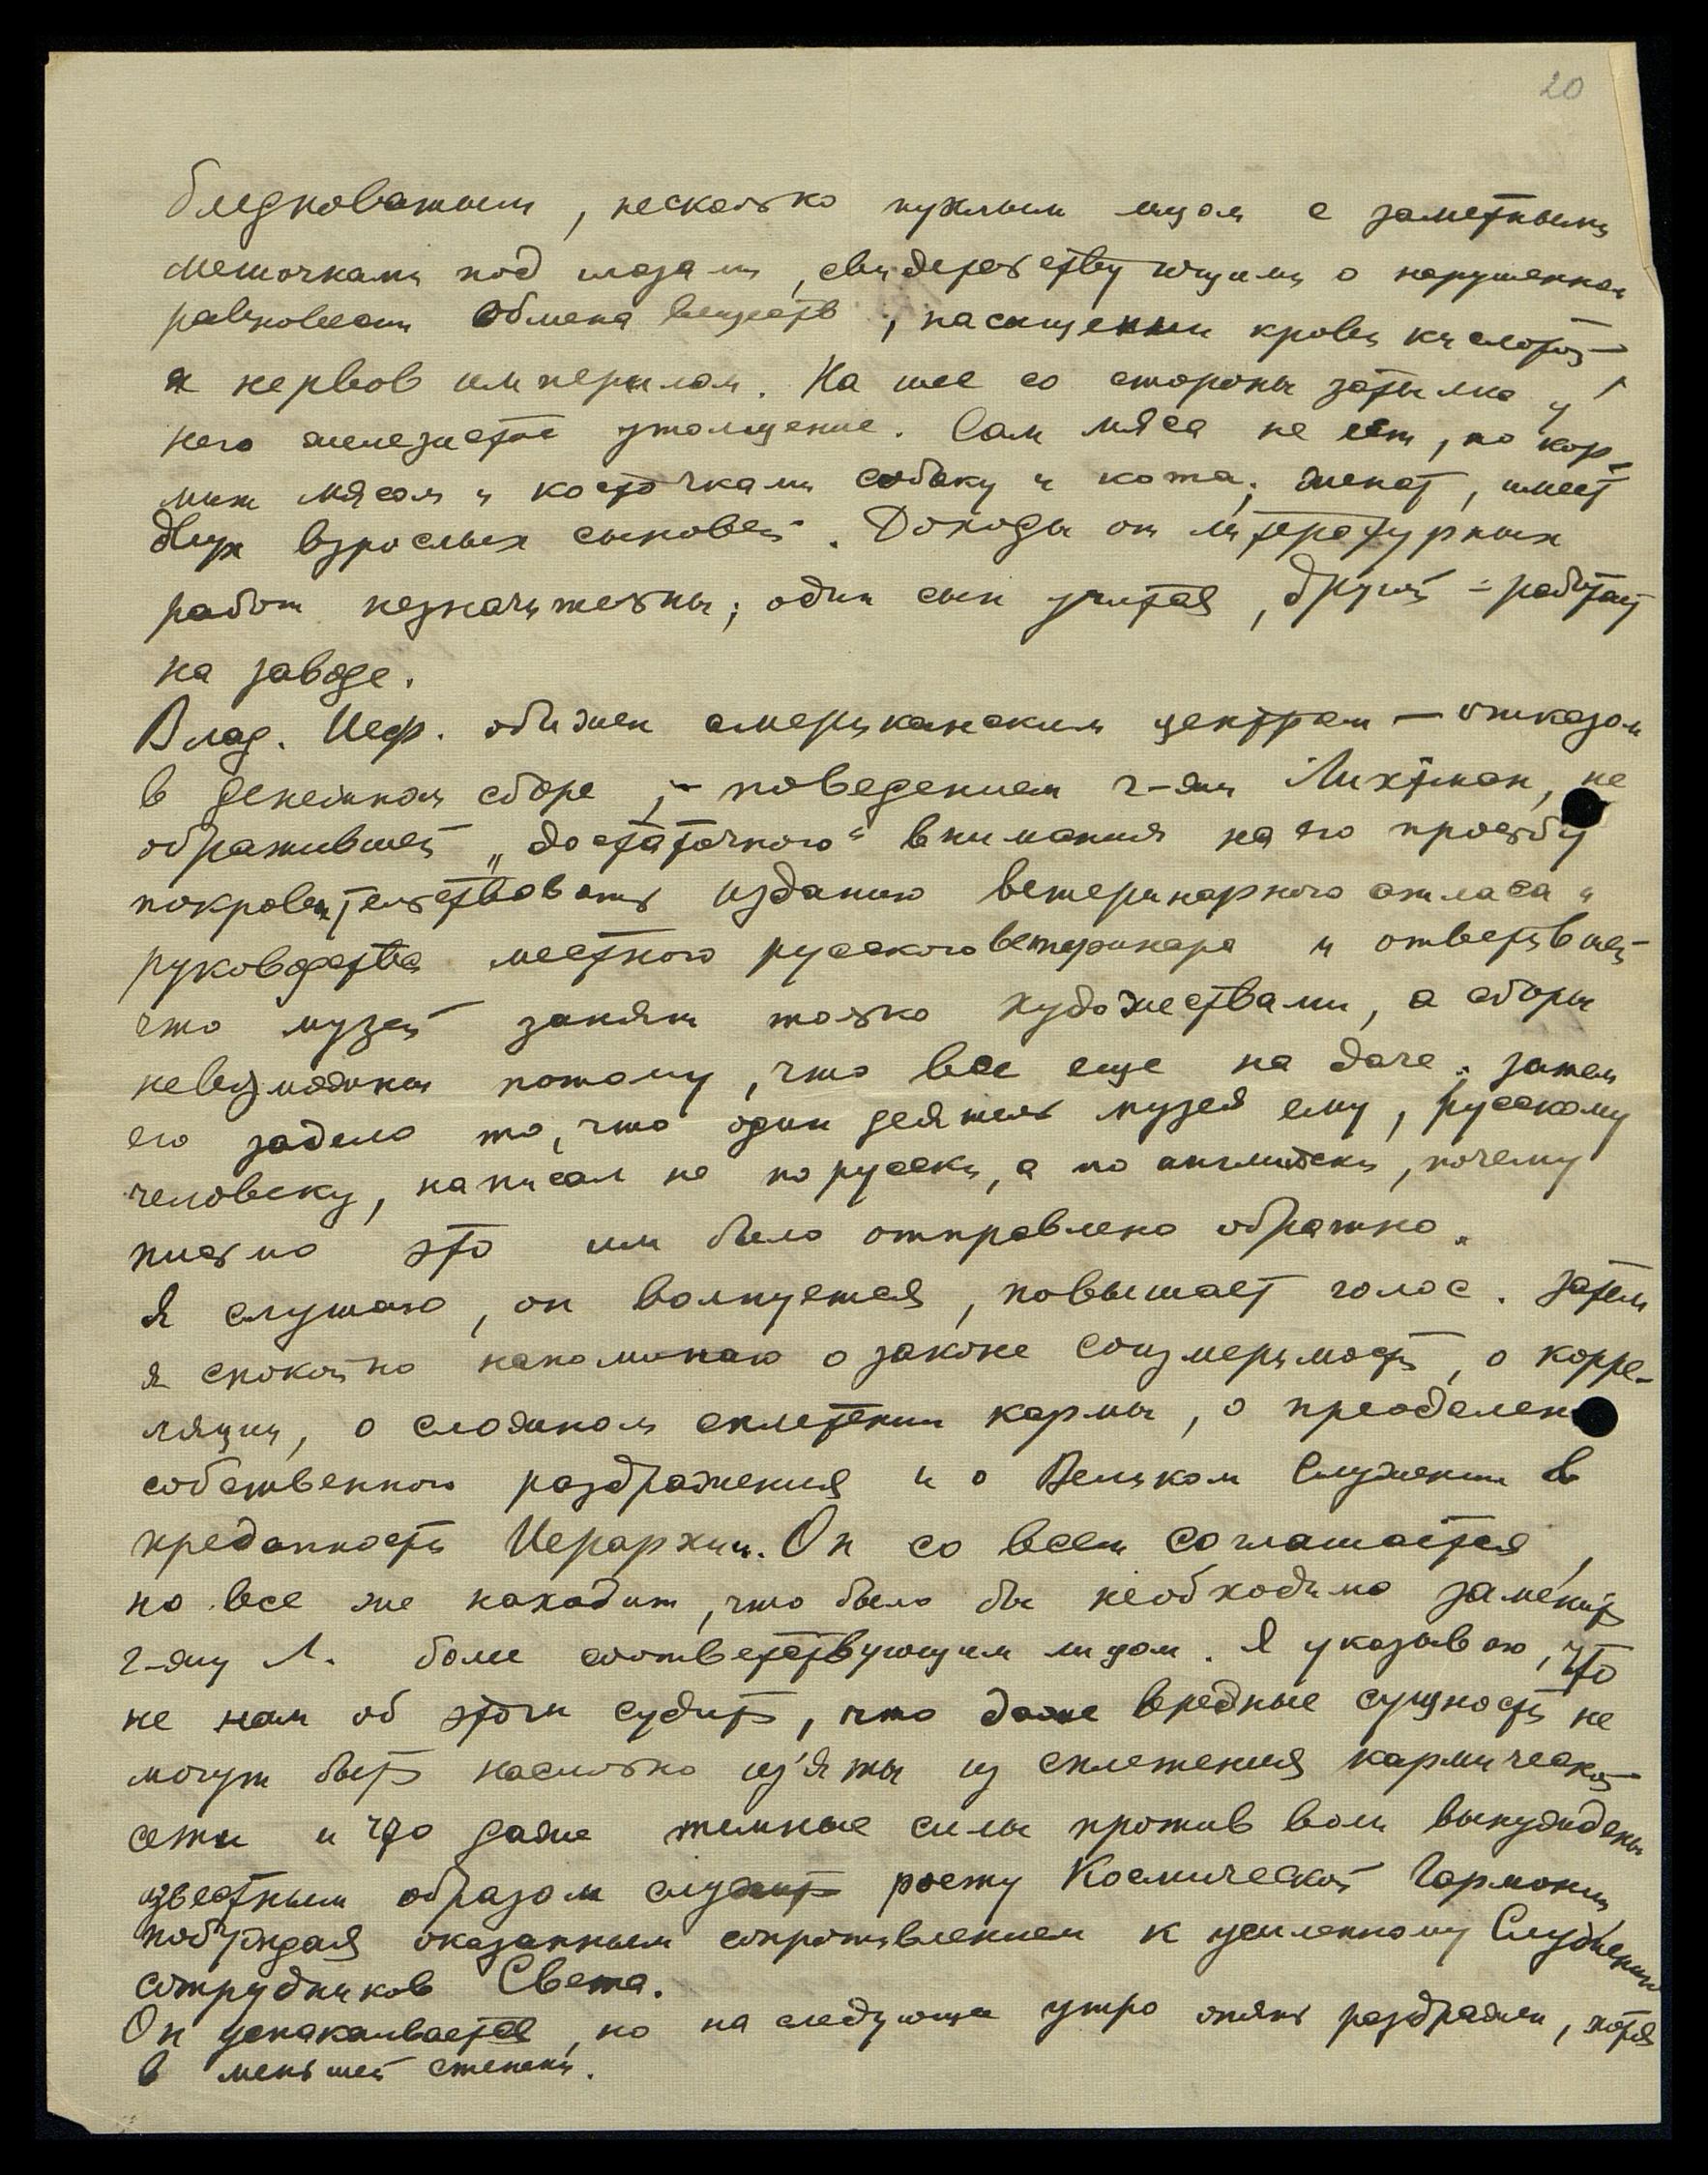 20
бледноватым, несколько пухлым лицом с заметными
мешочками под глазами, свидетельствующими о нарушенном
равновесии обмена веществ, насыщении крови кислотой
и нервов империлом. На шее со стороны затылка у
него железистое утолщение. Сам мяса не ест, но кор-
мит мясом и косточками собаку и кота; женат, имеет
двух взрослых сыновей. Доходы от литературных
работ незначительны; один сын учится, другой – работает
на заводе.
Влад. Иеф. обижен американским центром – отказом
в денежном сборе, – поведением г-жи Лихтман, не
обратившей „достаточного" внимания на его просьбу
покровительствовать изданию ветеринарного атласа и
руководства местного русского ветеринара и ответившей
что музей занят только художествами, а сборы
невозможны потому, что все еще на даче; затем
его задело то, что один деятель музея ему, русскому
человеку, написал не по русски, а по английски, почему
письмо это им было отправлено обратно.
Я слушаю, он волнуется, повышает голос. Затем
я спокойно напоминаю о законе соизмеримости, о корре-
ляции, о сложном сплетении кармы, о преодолен
собственного раздражения и о Великом Служении в
преданности Иерархии. Он со всем соглашается,
но все же находит, что было бы необходимо заменить
г-жу Л. более соответствующим лицом. Я указываю, что
не нам об этом судить, что даже вредные сущности не
могут быть насильно из'яты из сплетения кармической
сети и что даже темные силы против воли вынуждены
известным образом служить росту Космической Гармонии,
побуждая оказанным сопротивлением к усиленному Служению
сотрудников Света.
Он успокаивается, но на следующее утро опять раздражен, хотя
в меньшей степени.